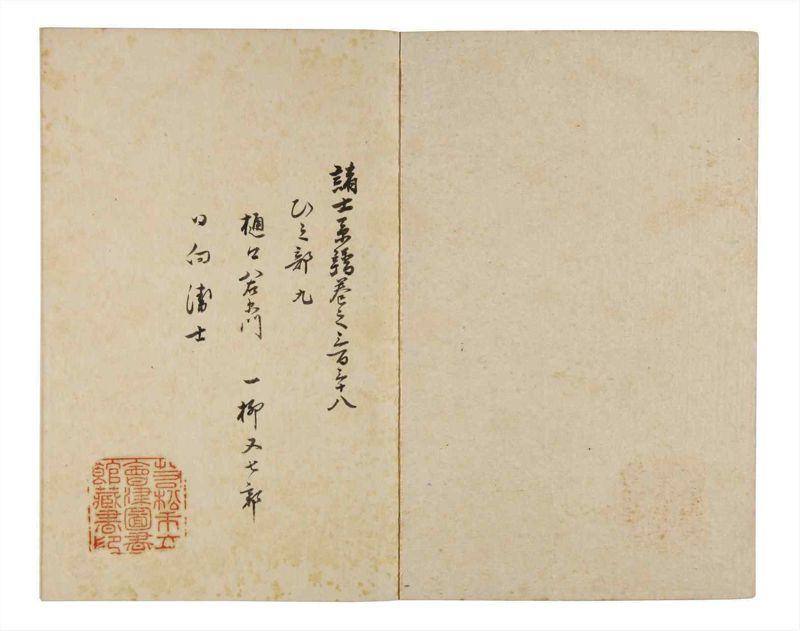 諸士系譜巻之三百三十八
ひ之部 九
樋口八右衛門 一柳又七郎
日向衛士
若松市立
會津圖書
館藏書印